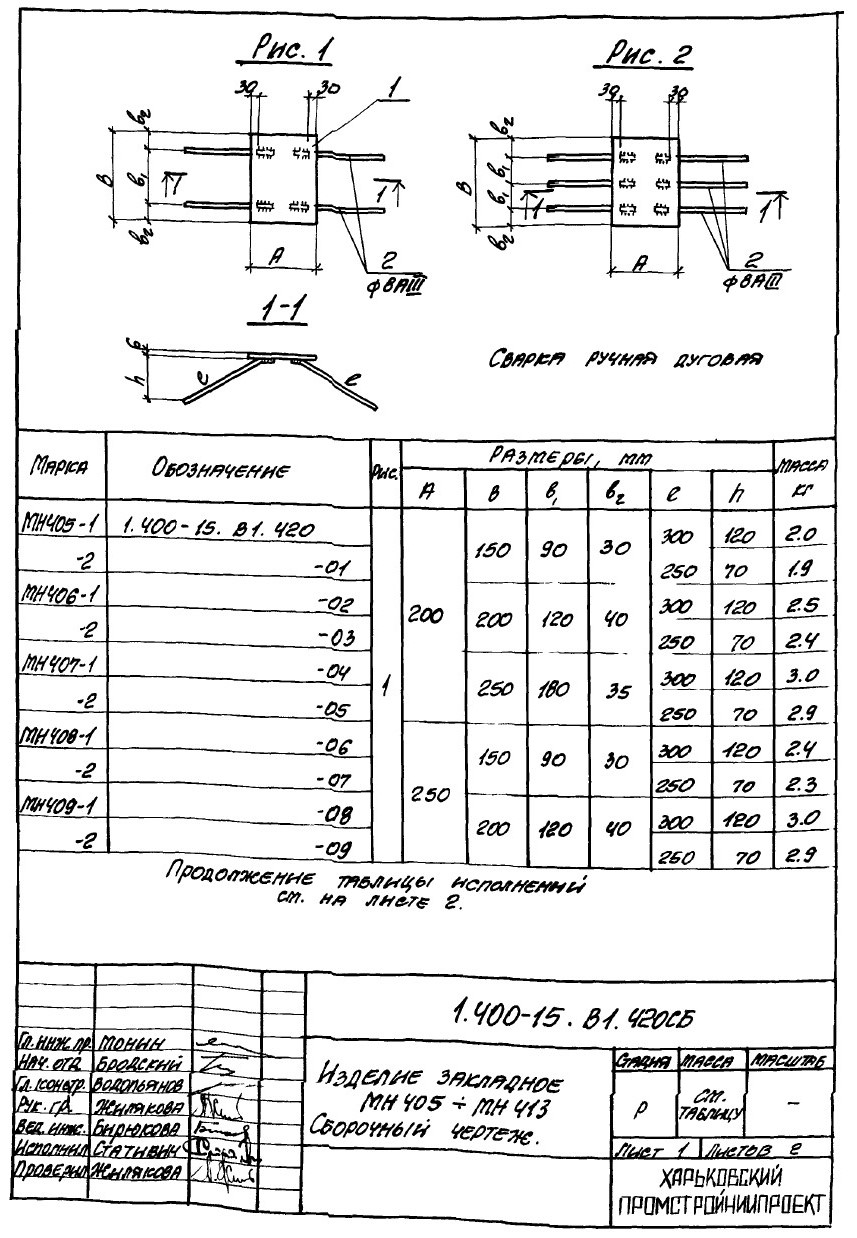 Рис. 1
Рис. 2
30 30 1
30 30
в2 в1 в2 В
в2 в1 в1 в2 В
1 1
1 1
А
А
2
ф8АIII
2
ф8АIII
1-1
6
h
е е
Сварка ручная дуговая
Марка Обозначение Рис. Размеры, мм Масса кг
А В в1 в2 е h
МН405-1 1.400-15. В1. 420 1 200 150 90 30 300 120 2.0
-2 -01 250 70 1.9
МН406-1 -02 200 120 40 300 120 2.5
-2 -03 250 70 2.4
МН407-1 -04 250 180 35 300 120 3.0
-2 -05 250 70 2.9
МН408-1 -06 250 150 90 30 300 120 2.4
-2 -07 250 70 2.3
МН409-1 -08 200 120 40 300 120 3.0
-2 -09 250 70 2.9
Продолжение таблицы исполнений
см. на листе 2.
1.400-15. В1. 420СБ
Гл. инж. пр. Монин
Нач. отд. Бродский
Гл. констр. Водопьянов
Рук. гр. Жилякова
Вед. инж. Бирюкова
Исполнил Стативич
Проверил Жилякова
Изделие закладное
МН 405 ÷ МН 413
Сборочный чертеж.
Стадия Масса Масштаб
Р см. таблицу –
Лист 1 Листов 2
ХАРЬКОВСКИЙ
ПРОМСТРОЙНИИПРОЕКТ